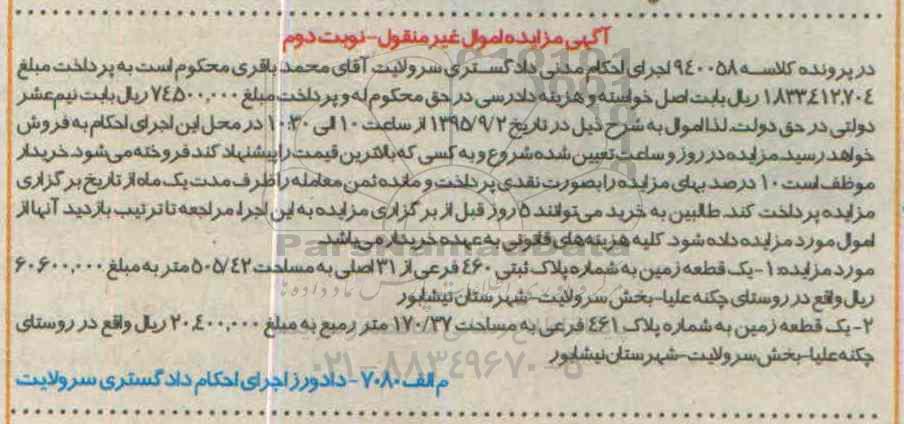 آگهی مزایده اموال غیر منقول-نوبت دوم
در پرونده کلاسه ۹۴۰۰۵۸ اجرای احکام مدنی دادگستری سرولایت آقای محمد باقری محکوم است به پرداخت مبلغ
۱،۸۳۳،۴۱۲،۷۰۴ ریال بابت اصل خواسته و هزینه دادرسی در حق محکوم له و پرداخت مبلغ ۷۴،۵۰۰،۰۰۰ ریال بابت نیم عشر
دولتی در حق دولت. لذا اموال به شرح ذیل در تاریخ ۱۳۹۵/۹/۲ از ساعت ۱۰ الی ۱۰:۳۰ در محل این اجرای احکام به فروش
خواهد رسید. مزایده در روز و ساعت تعیین شده شروع و به کسی که بالاترین قیمت را پیشنهاد کند فروخته می‌شود. خریدار
موظف است ۱۰ درصد بهای مزایده را بصورت نقدی پرداخت و مانده ثمن معامله را ظرف مدت یک ماه از تاریخ برگزاری
مزایده پرداخت کند. طالبین به خرید می‌توانند ۵ روز قبل از برگزاری مزایده به این اجرا، مراجعه تا ترتیب بازدید آنها از
اموال مورد مزایده داده شود. کلیه هزینه های قانونی به عهده خریدار می‌باشد.
مورد مزایده: ۱- یک قطعه زمین به شماره پلاک ثبتی ۴۶۰ فرعی از ۳۱ اصلی به مساحت ۵۰۵/۴۲ متر به مبلغ ۶۰،۶۰۰،۰۰۰
ریال واقع در روستای چکنه علیا- بخش سرولایت- شهرستان نیشابور
۲- یک قطعه زمین به شماره پلاک ۴۶۱ فرعی به مساحت ۱۷۰/۳۷ متر ربع به مبلغ ۲۰،۴۰۰،۰۰۰ ریال واقع در روستای
چکنه علیا- بخش سرولایت- شهرستان نیشابور
م الف ۷۰۸۰- دادورز اجرای احکام دادگستری سرولایت
ParsNamadData
۰۲۱-۸۸۳۴۹۶۷۰-۵